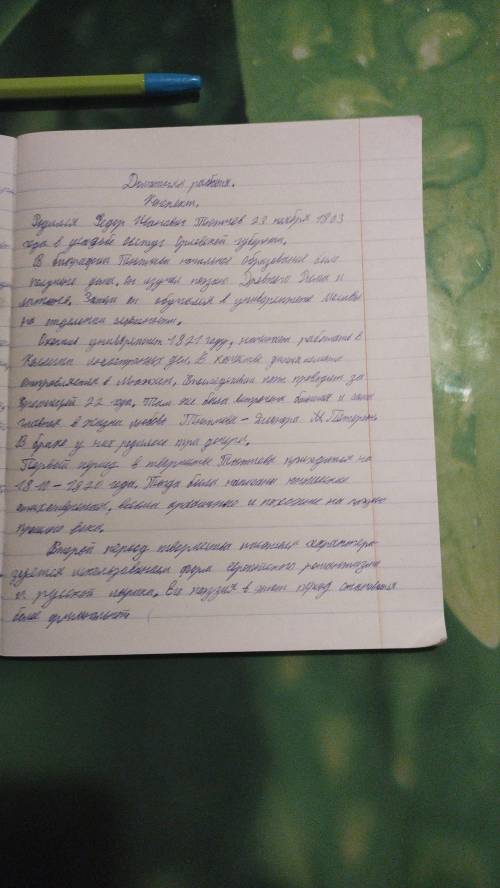 Домашняя работа.
Конспект.
Родился Федор Иванович Тютчев 23 ноября 1803
года в усадьбе Овстуг Орловской губернии.
В биографии Тютчева начальное образование было
получено дома. Он изучил поэзию Древнего Рима и
латынь. Затем он обучался в университете Москвы
на отделении словесности.
Окончив университет 1821 году, начинает работать в
Коллегии иностранных дел. В качестве дипломата
отправляется в Мюнхен. Впоследствии поэт проводит за
границей 22 года. Там же была встречена большая и самая
главная в жизни любовь Тютчева - Элеонора Петерсон.
В браке у них родилось три дочери.
Первый период в творчестве Тютчева приходится на
1810-1820 годы. Тогда были написаны юношеские
стихотворения, весьма архаичные и похожие на поэзию
прошлого века.
Второй период творчества писателя характери-
зуется использованием форм европейского романтизма
и русской лирики. Его поэзия в этот период становится
более оригинальной